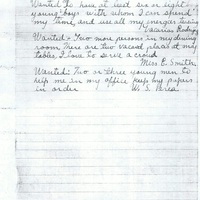 Wanted to have at least six or eight
young boys with whom I can spend
my time, and use all my energies
Zacarias Rodrigo
Wanted - Two more persons in my dining
room. There are two vacant places at my
tables. I love to serve a crowd.
Miss E. Smith
Wanted: Two or three young men to
help me in my office keep by papers
in order W. S.